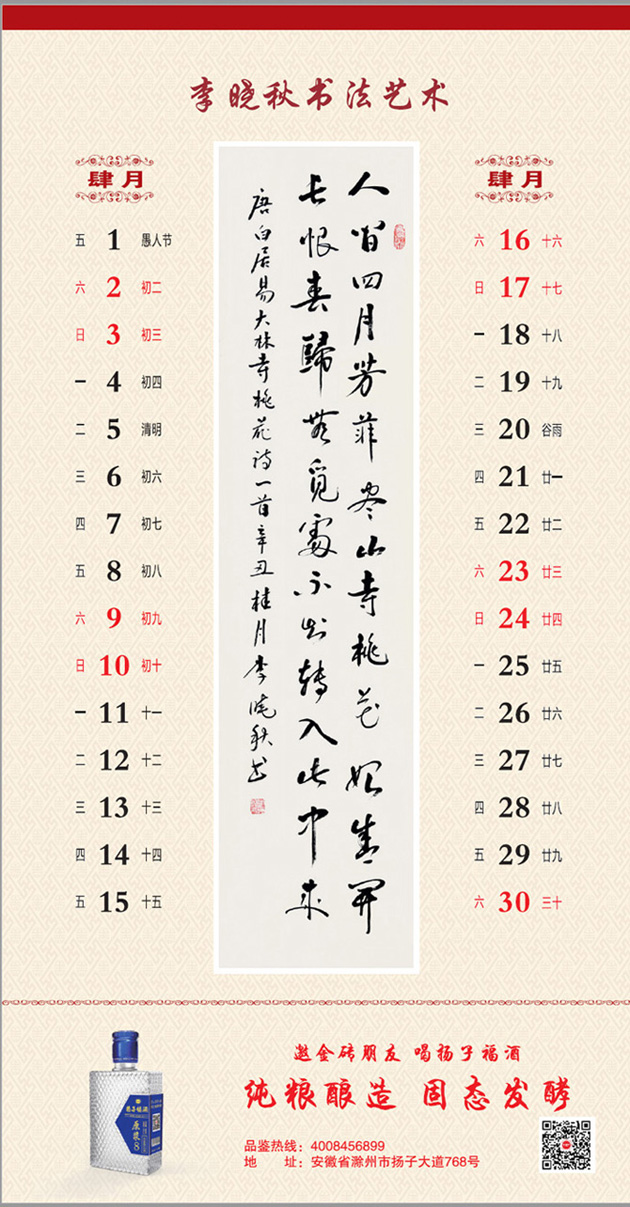 李晓秋书法艺术
肆月
五 1 愚人节
六 2 初二
日 3 初三
一 4 初四
二 5 清明
三 6 初六
四 7 初七
五 8 初八
六 9 初九
日 10 初十
一 11 十一
二 12 十二
三 13 十三
四 14 十四
五 15 十五
人间四月芳菲尽山寺桃花始盛开
长恨春歸无觅处不知转入此中来
唐白居易大林寺桃花诗一首辛丑桂月李晓秋书
肆月
六 16 十六
日 17 十七
一 18 十八
二 19 十九
三 20 谷雨
四 21 廿一
五 22 廿二
六 23 廿三
日 24 廿四
一 25 廿五
二 26 廿六
三 27 廿七
四 28 廿八
五 29 廿九
六 30 三十
邀金砖朋友 喝杨子福酒
纯粮酿造 固态发酵
品鉴热线：4008456899
地 址：安徽省滁州市扬子大道768号
原浆8